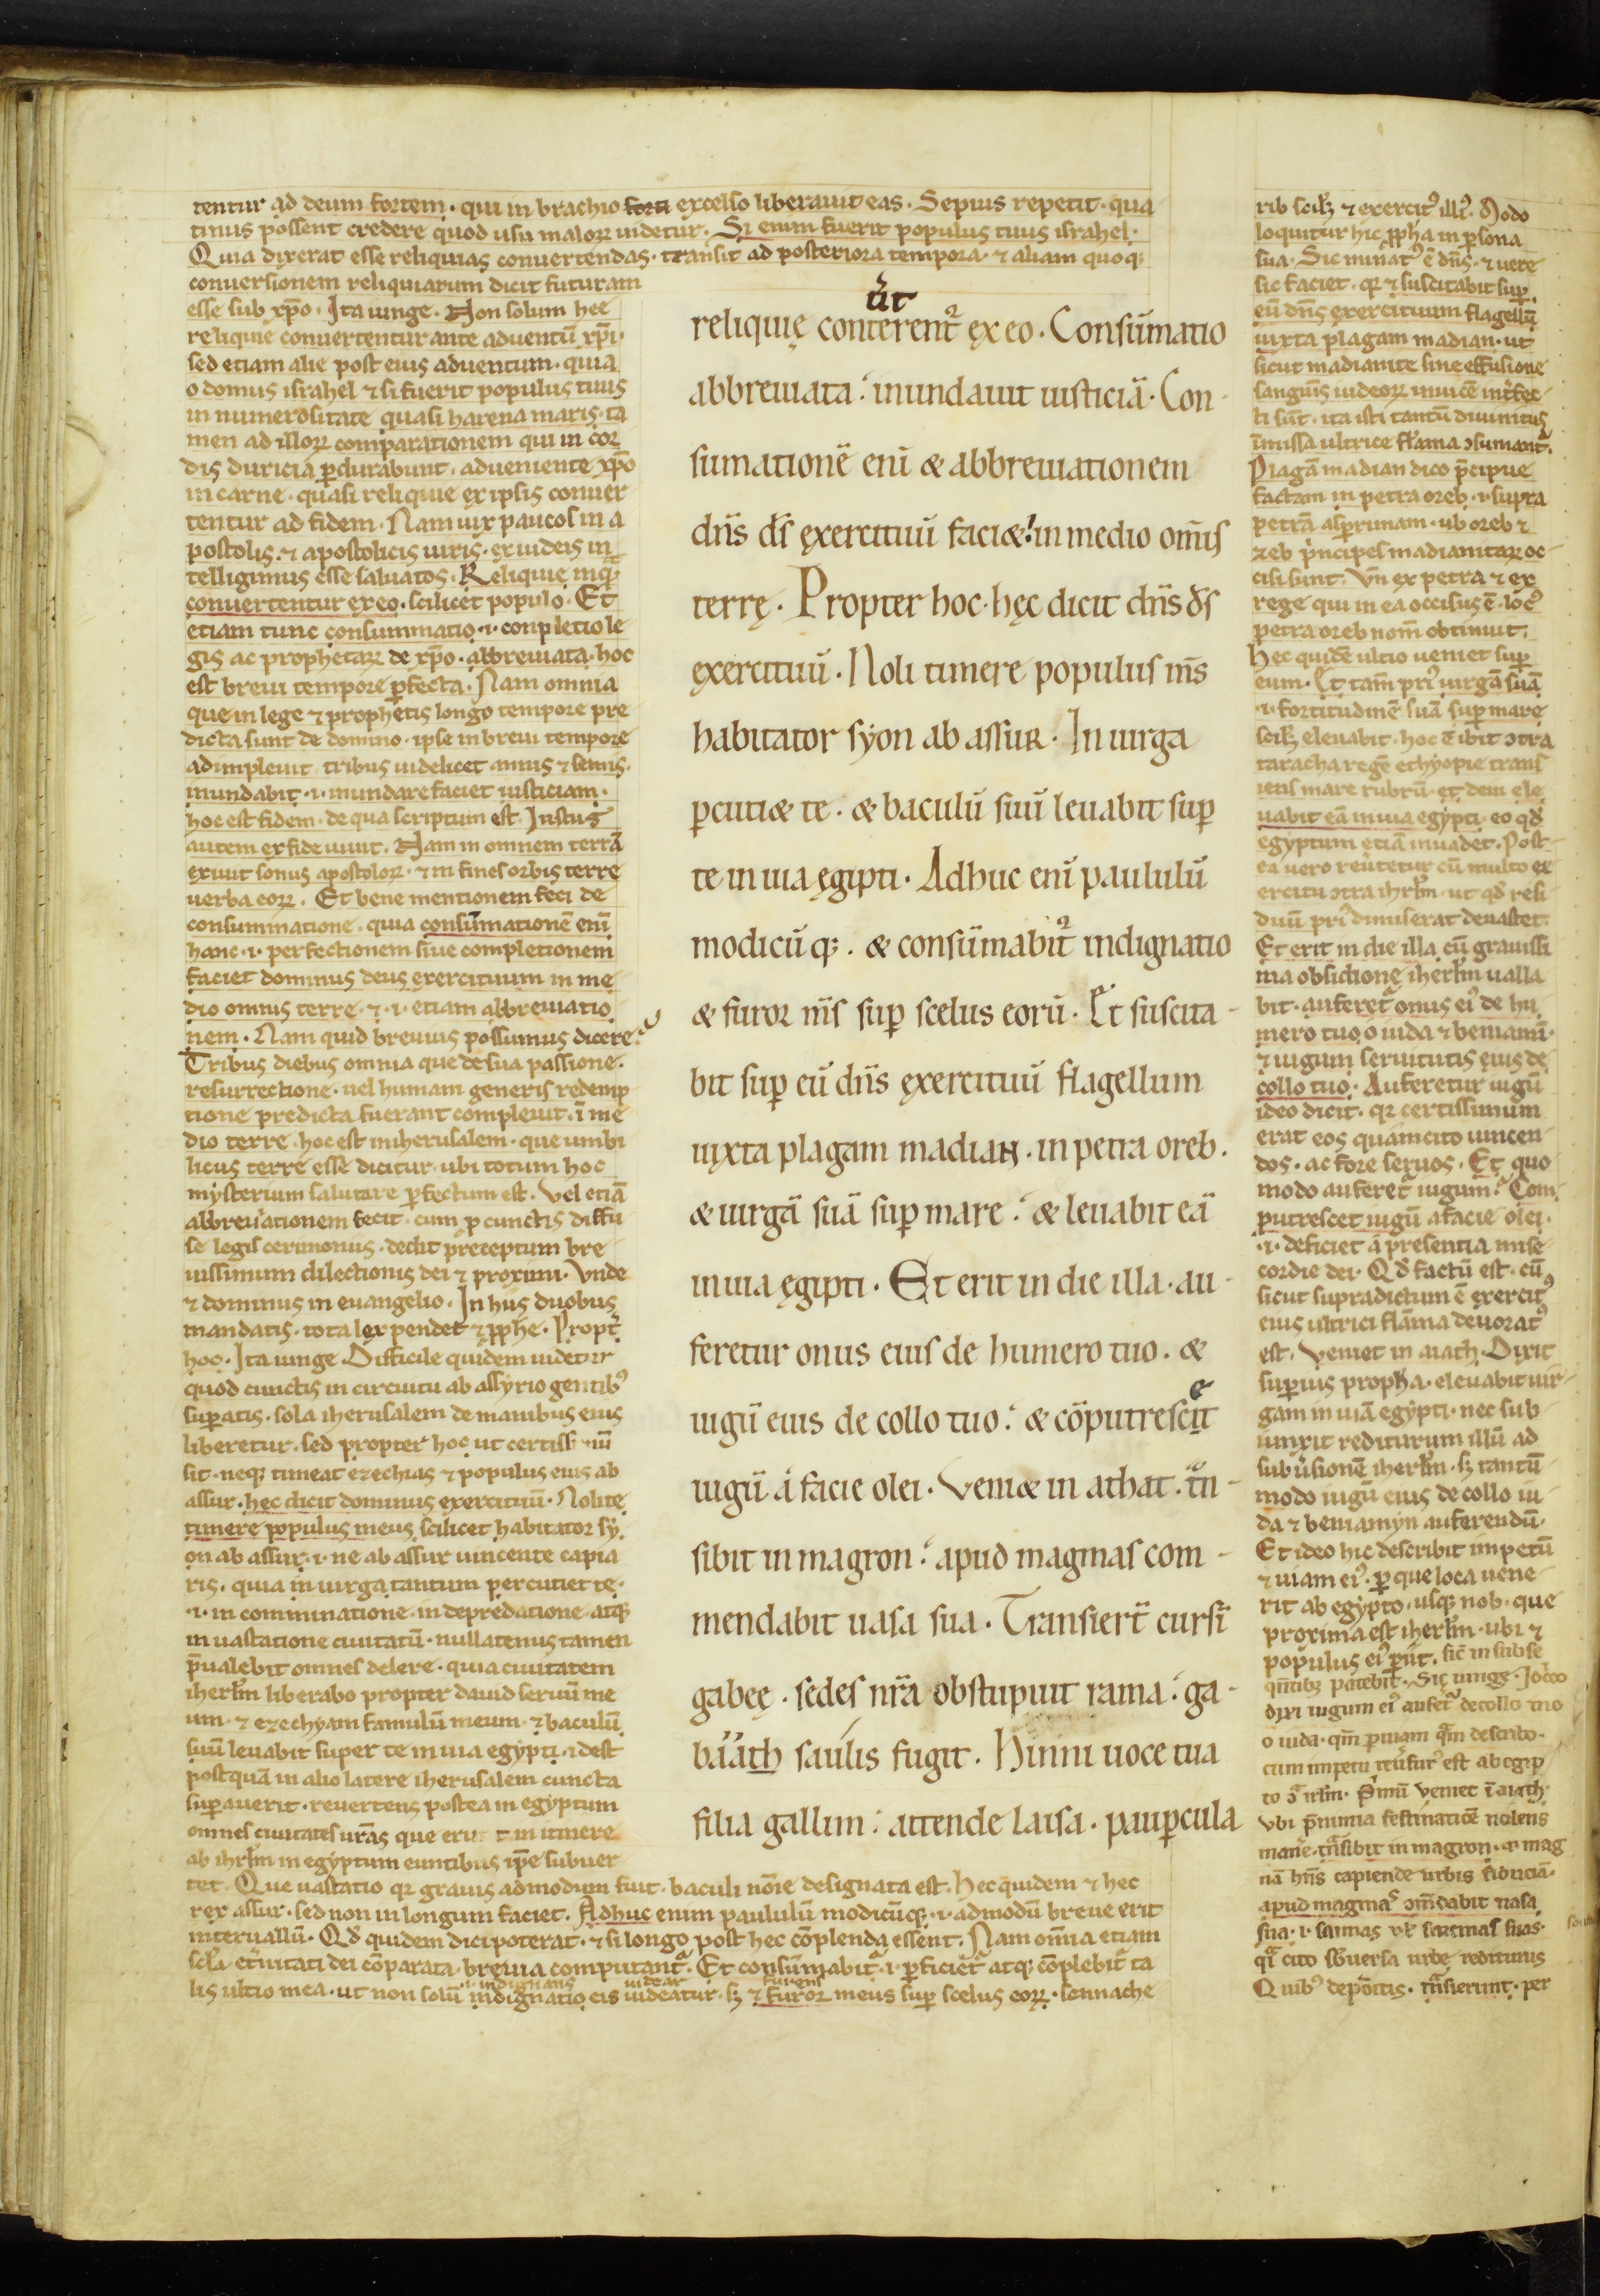 tentur ad deum fortem · qui in brachio forti excelso liberauit eas · Sepius repetit · qua
tinus possent credere quod usu maloꝝ uidetur · Si enim fuerit populus tuus israhel ·
Quia dixerat esse reliquias conuertendas · transit ad posteriora tempora · ⁊ aliam quoqꝫ
conuersionem reliquiarum dicit futuram
esse sub xp̄o · Ita iunge · Non solum hee
relique conuertentur ante aduentū xp̄i ·
sed etiam alie post eius aduentum · quia
o domus israhel ⁊ si fuerit populus tuus
in numerositate quasi harena maris · ta
men ad illoꝝ comparationem qui in cor
dis duricia ꝑdurabunt · adueniente xp̄o
in carne · quasi reliquie ex ipsis conuer
tentur ad fidem · Nam uix paucos in a
postolis · ⁊ apostolicis uiris · ex iudeis in
telligimus esse saluatos · Reliquie inqͣꝫ
conuertentur ex eo · scilicet populo · Et
etiam tunc consummatio · i · conpletio le
gis ac prophetaꝝ de xp̄o · abbreuiata · hoc
est breui tempore ꝑfecta · Nam omnia
que in lege ⁊ prophetis longo tempore pre
dicta sunt de domino · ipse in breui tempore
adimpleuit · tribus uidelicet annis ⁊ semis ·
inundabit · i · inundare faciet iusticiam ·
hoc est fidem · de qua scriptum est · Iustus
autem ex fide uiuit · Nam in omnem terrā
exiuit sonus apostoloꝝ · ⁊ in fines orbis terre
uerba eoꝝ · Et bene mentionem feci de
consummatione · quia consūmationē enī
hanc · i · perfectionem siue completionem
faciet dominus deus exercituum in me
dio omnis terre · ⁊ · i · etiam abbreuiatio
nem · Nam quid breuius possumus dicere?
Tribus diebus omnia que de sua passione ·
resurrectione · uel humani generis redemp
tione predicta fuerant compleuit · ī me
dio terre · hoc est in iherusalem · que umbi
licus terre esse dicitur · ubi totum hoc
mysterium salutare ꝑfectum est · Vel etiā
abbreuiationem fecit · cum ꝓ cunctis diffu
se legis cerimoniis · dedit preceptum bre
uissimum dilectionis dei ⁊ proximi · Vnde
⁊ dominus in euangelio · In hiis duobus
mandatis · tota lex pendet ⁊ ꝓphe · Propt̉
hoc · Ita iunge Difficile quidem uidetur
quod cunctis in circuitu ab assyrio gentibꝰ
suꝑatis · sola iherusalem de manibus eius
liberetur · sed propter hoc ut certissimū
sit · neqꝫ timeat ezechias ⁊ populus eius ab
assur · hec dicit dominus exercituū · Nolite
timere populus meus scilicet habitator sy
on ab assur · i · ne ab assur uincente capia
ris · quia in uirga tantum percutiet te ·
· i · in comminatione · in depredatione · atqꝫ
in uastatione ciuitatū · nullatenus tamen
p̄ualebit omnes delere · quia ciuitatem
iherl̄m liberabo propter dauid seruū me
um · ⁊ ezechyam famulū meum · ⁊ baculū
suū leuabit super te in uia egypti · idest
postquā in alio latere iherusalem cuncta
suꝑauerit · reuertens postea in egyptum
omnes ciuitates ur̄as que in itinere
ab ihrl̄m in egyptum euntibus ip̄e subuer
tet · Que uastatio qꝛ grauis admodum fuit · baculi noīe designata est · Hec quidem ⁊ hec
rex assur · sed non in longum faciet · Adhuc enim paululū modicūqꝫ · i · admodū breue erit
interuallū · Qd̄ quidem dici poterat · ⁊ si longo post hec cōplenda essent · Nam omīa etiam
sc̄la et̉nitati dei cōparata · breuia computantᷣ · Et consūmabitᷣ · i · ꝑficietᷣ atqꝫ cōplebitᷣ ta
· i · indignans uidear furens
lis ultio mea · ut non solū indignatio eis uideatur · sꝫ ⁊ furor meus suꝑ scelus eoꝝ · sennache
ūt
reliquię conterentᷣ ex eo · Consūmatio
abbreuiata · inundauit iusticiā · Con-
sumationē enī & abbreuiationem
dn̄s ds̄ exercituū faci& in medio om̄is
terrę · Propter hoc · hęc dicit dn̄s ds̄
exercituū · Noli timere populus ms̄
habitator syon ab assur · In uirga
ꝑcuti& te · & baculū suū leuabit suꝑ
te in uia ęgipti · Adhuc enī paululū
modicū qꝫ · & consūmabitᷣ indignatio
& furor ms̄ suꝑ scelus eorū · Et suscita-
bit suꝑ eū dn̄s exercituū flagellum
iuxta plagam madian · in petra oreb ·
& uirgā suā suꝑ mare · & leuabit eā
in uia ęgipti · Et erit in die illa · au-
feretur onus eius de humero tuo · &
e
iugū eius de collo tuo · & cōputrescit
iugū a facie olei · Veni& in athat · tͣn-
sibit in magron · apud magmas com-
mendabit uasa sua · Transiert̄ cursī
gabeę · sedes nr̄a obstupuit rama · ga-
baath saulis fugit · Hinni uoce tua
filia gallim · attende laisa · pauꝑcula
rib scilꝫ ⁊ exercitꝰ illiꝰ · Modo
loquitur hic ꝓpha in ꝑsona
sua · Sic minatᷣ ē dn̄s · ⁊ uere
sic faciet · qꝛ ⁊ suscitabit suꝑ
eū dn̄s exercituum flagellū
iuxta plagam madian · ut
sicut madianite sine effusione
sanguīs iudeoꝝ inuicē int̉fec
ti sūt · ita isti tantū diuinitus
īmissa ultrice flāma ꝯsumantᷣ ·
Plagā madian dico p̄cipue
factam in petra oreb · i · supra
petrā asꝑrimam · ub oreb ⁊
zeb p̉ncipes madianitaꝝ oc-
cisi sunt · Vn̄ ex petra ⁊ ex
rege qui in ea occisus ē · locꝰ
petra oreb nom̄ obtinuit ·
Hec quidē ultio ueniet suꝑ
eum · Et tam̄ priꝰ uirgā suā
· i · fortitudinē suā suꝑ mare
scilꝫ eleuabit · hoc ē ibit ꝯtra
taracha regē ethyopie trans
iens mare rubrū · et dein ele
uabit eā in uia egypti · eo qd̄
egyptum etiā inuadet · Post-
ea uero reủtetur cū multo ex
ercitu ꝯtra ihrl̄m · ut qd̄ resi
duū priꝰ dimiserat deuastet ·
Et erit in die illa cū grauissi
ma obsidione iherl̄m ualla
bit · auferetᷣ onus eiꝰ de hu
mero tuo o iuda ⁊ beniamī ·
⁊ iugum seruitutis eius de
collo tuo · Auferetur iugū
ideo dicit · qꝛ certissimum
erat eos quamcito uincen-
dos · ac fore seruos · Et quo
modo auferetᷣ iugum? Com
putrescet iugū a facie olei ·
· i · deficiet a presentia mise
cordie dei · Qd̄ factū est · cū
sicut supradictum ē exercitꝰ
eius ultrici flāma deuoratꝰ
est · Veniet in aiath · Dixit
suꝑius propha · eleuabit uir-
gam in uiā egypti · nec sub-
iunxit rediturum illū ad
subủsionē iherl̄m · sꝫ tantū
modo iugū eius de collo iu
da ⁊ beniamyn auferendū ·
Et ideo hic describit impetū
⁊ uiam eiꝰ · ꝑ que loca uene
rit ab egypto · usqꝫ nob · que
proxima est iherl̄m · ubi ⁊
populus eiꝰ ꝑiit · sic̄ in subse
qn̄tibꝫ patebit · Sic iunge ·
dixi iugum eiꝰ aufetᷣ de collo tuo
o iuda · qm̄ describo ·
cum impetu reủsurꝰ est ab egip
to ꝯͣ irl̄m · P̉mū ueniet ī aiath ·
Vbi p̄ nimia festinatiōe nolens
mane̊ · tͣnsibit in magron · ⁊ mag
nā hn̄s capiende urbis fiduciā ·
apud magmas ꝯm̄dabit uasa
sua · i · sarcinas suas ·
cito sbuersa urbe rediturus
Quibꝰ depoītis · tͣnsierunt · per